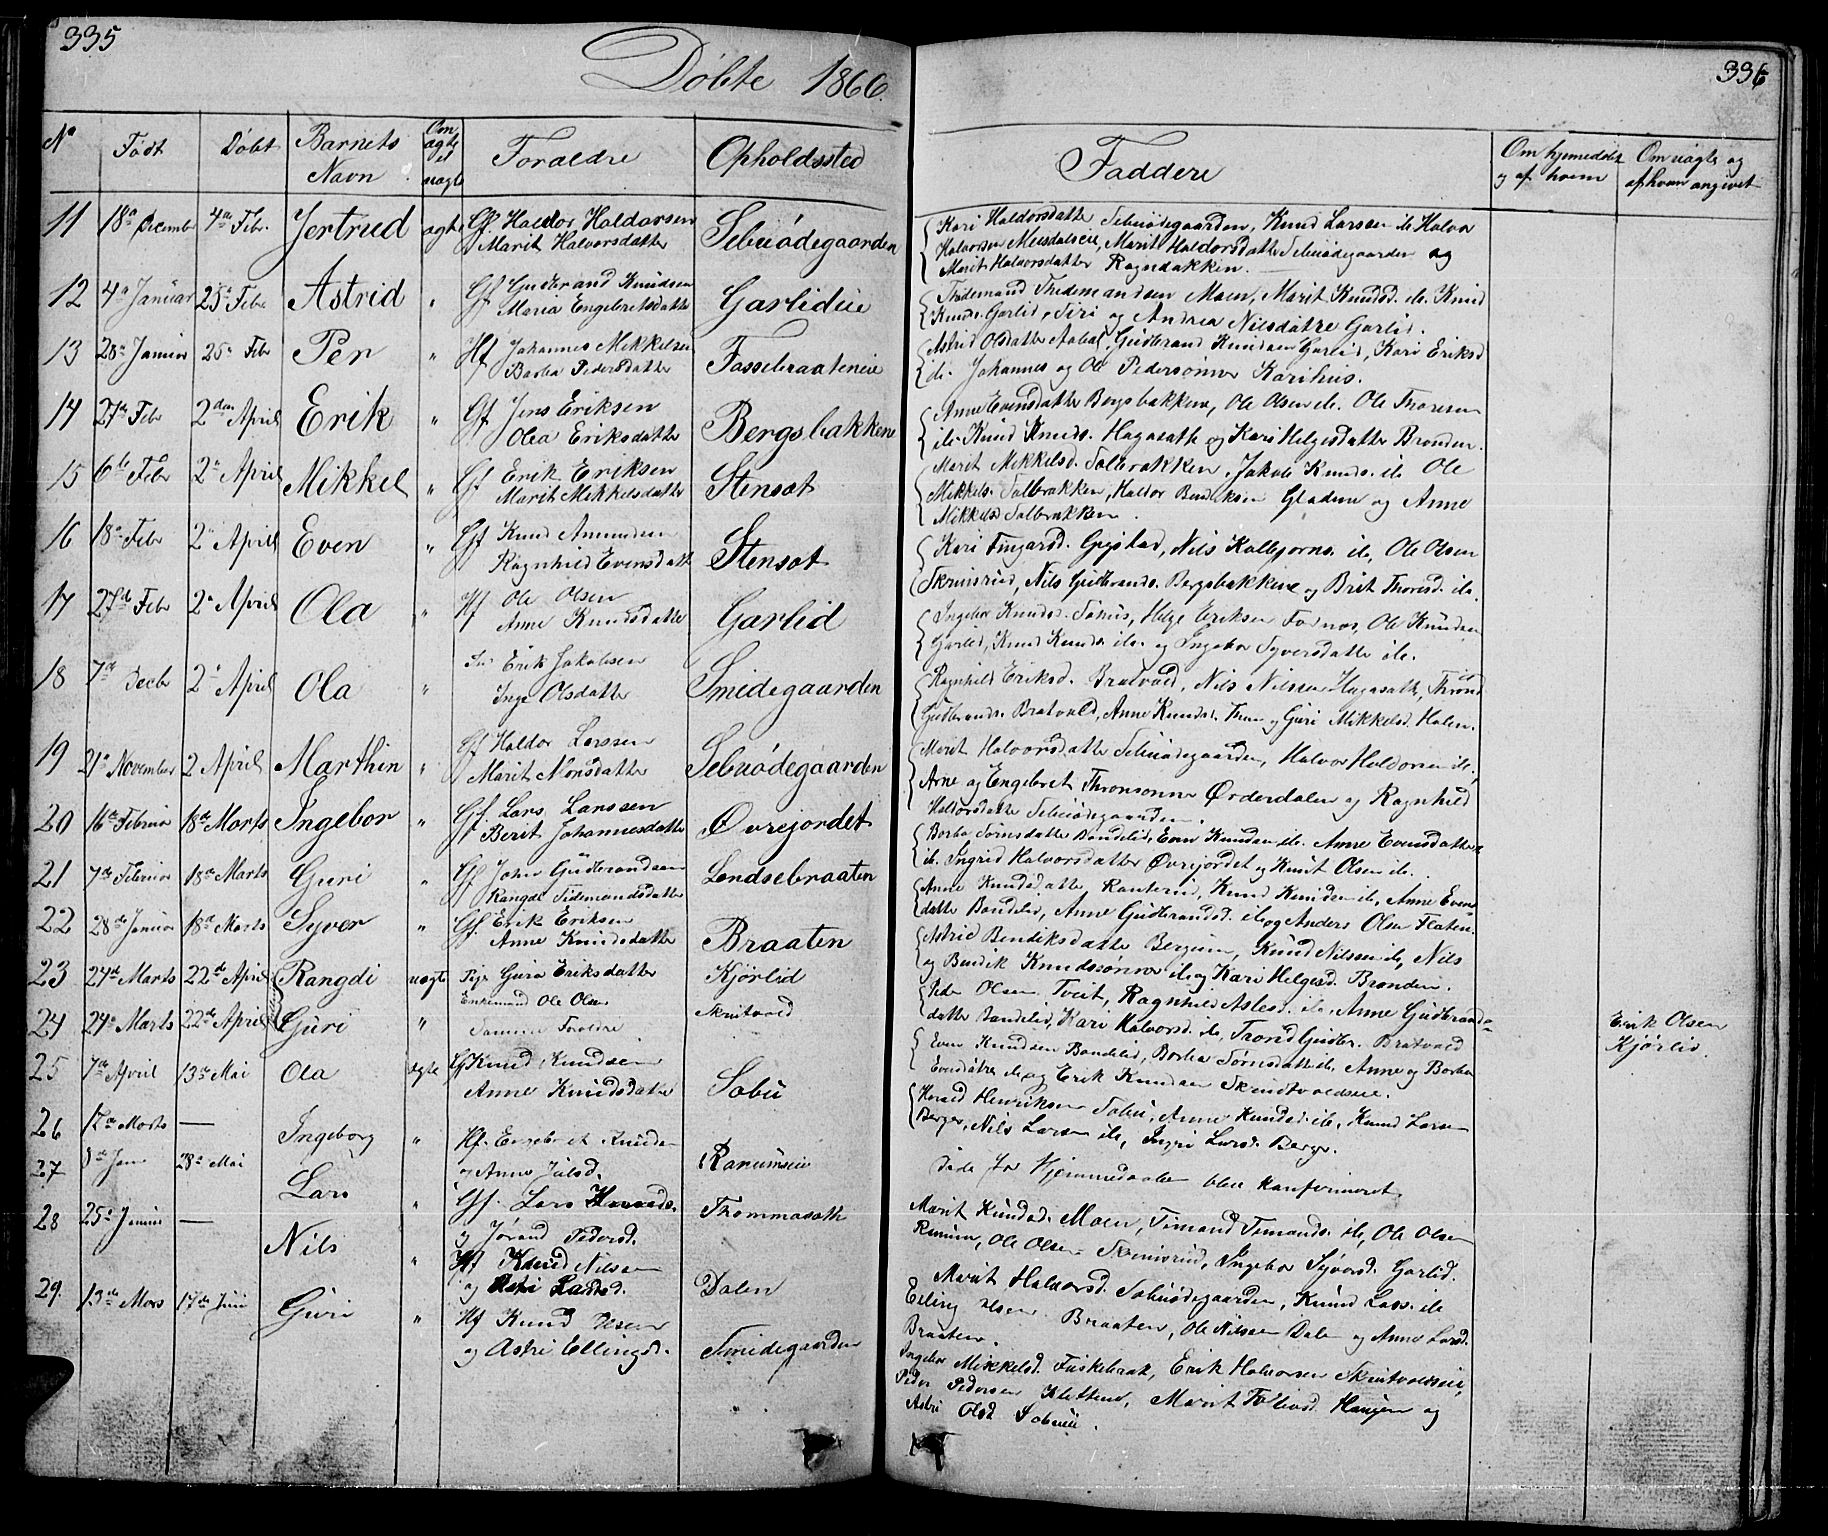 335
Døbte 1866.
336
No Født Døbt Barnets Navn Om ægte el uægte Forældre Opholdssted Faddere Om hjemmedøbt og af hvem Om uægte og af hvem angivet
11 18de Decemb 4de Febr. Jertrud ægte Gf. Haldor Haldorsen Marit Halvorsdatter Sebuødegaarden
Kari Haldorsdatter Sebuødegaarden, Knud Larssen ib. Halvor
Halvorsen Meisdalseie, Marit Haldorsdatter Sebuødegaarden og
Marit Halvorsdatter Ragndokken.
12 4de Januar 25de Febr Astrid " Gf Gudbrand Knudsen Maria Engebretsdatter Garlideie
Thidemand Thidemandsen Moen, Marit Knudsd. ib. Knud
Knuds. Garlid, Siri og Andrea Nilsdøtre Garlid.
13 28de Januar 25de Febr Per " Hf Johannes Mikkelsen Barba Pedersdatter Fossebraateneie
Astrid Olsdatter Gudbrand Knudsen Garlid, Kari Eriksd
ib. Johannes og Ole Pedersønner Karihus.
14 27de Febr 2den April Erik " Gf Jens Eriksen Olea Eriksdatter Bergsbakkene
Anne Evensdatter Bergsbakkene, Ole Olsen ib. Ole Thoresen
ib. Knud Knuds. Hagasath og Kari Helgesdatter Brønden.
15 6te Febr 2de April Mikkel " Gf Erik Eriksen Marit Mikkelsdatter Stensæt
Marit Mikkelsd. Solbrækken, Jakob Knuds. ib. Ole
Mikkels. Solbrækken, Haldor Bendiksen Gladene og Anne
Mikkelsd Solbrækken.
16 18de Febr 2de April Even " Gf Knud Amundsen Ragnhild Evensdatt Stensæt
Kari Fingarsd. Nils Kolbjørns. ib, Ole Olsen
Skrinsrud, Nils Gudbrands. Bergsbakkene og Brit Thoresd. ib.
17 27de Febr 2de April Ola " Hf Ole Olsen Anne Knudsdatter Garlid
Ingebor Knudsd. Helge Eriksen Fornos, Ole Knudsen
Garlid, Knud Knuds. ib. og Ingebor Syversdatter ib.
18 7de Decbr 2de April Ola " Erik Jakobsen Inge Olsdatter Smidegaarden
Ragnhild Eriksd. Bratvold, Nils Nilsen Hagasath, Thrond
Gudbrands. Bratvold, Anne Knudsd. og Guri Mikkelsd. Holen.
19 21de November 2 April Marthin " Gf Haldor Larssen Marit Monsdatter Sebuødegaarden
Marit Halvorsdatter Sebuødegaarden, Halvor Haldorsen ib.,
Arne og Engebret Thronsønner Ørderdalen og Ragnhild
Haldorsdatter Sebuødegaarden.
20 16de Februar 18de Marts Ingebor " Gf. Lars Larssen Gf Berit Johannesdatter Øvrejordet
Borba Tørrisdatter Bandelid, Even Knudsen ib. Anne Evensdatter
ib. Ingrid Halvorsdatter Øvrejordet og Knut Olsen ib.
21 7de Februar 18de Marts Guri " Gf John Gudbrandsen Rangdi Tidemandsdatter Lendsebraaten
Anne Knudsdatter Ranterud, Knud Knudsen ib, Anne Evens-
datter Bandelid, Anne Gudbrandsd. ib og Anders Olsen Flaten.
22 28de Januar 18de Marts Syver " Gf. Erik Eriksen Anne Knudsdatter Braaten
Astrid Bendiksdatter Bergum, Knud Nilssen ib, Nils
og Bendik Knudssønner ib og Kari Helgesd. Brønden.
23 24de Marts 22de April Rangdi uægte Pige Guri Eriksdatter Kjørlid
Peder Olsen Tveit, Ragnhild Aslesd. ib. Anne Gudbrands-
datter Bandelid, Kari Halvorsd. ib, Trond Gudbr. Bratvold
24 24de Marts 22de April Guri " Enkemand Ole Olsen Samme Foreldre Skrutvold Erik Olsen Kjørlid.
Even Knudsen Bandelid, Borba Tørrisdatter ib, Anne og Borba
Evensdøtre ib og Erik Knudsen Skrutvoldseie.
25 7de April 13de Mai Ola ægte Gf Knud Knudsen Anne Knudsdatter Søbu
Harald Henriksen Søbu, Anne Knudsd. ib, Knud Larsen
Berge, Nils Larsen ib, Ingri Larsd. Berge.
26 12de Marts — Ingeborg " Hf. Engebret Knudsen og Anne Juلsd. Ranumseie
Døde før Hjemmedaaben blev konfirmeret.
27 28de Mai Lars " Gf. Lars Knuds. og Jørand Pedersd. Thommasæth
Marit Knudsd. Moen, Timand Timands. ib, Ole Olsen
Ranum, Ole Olsen Skrinsrud, Ingebor Syvers d. Garlid.
28 25de Januar — Nils " Hf Knud Nilsen og Astri Larsd. Dalen
Marit Halvorsd. Sebuødegaarden, Knud Lars. ib
Elling Braaten, Ole Nilssen Dalen og Anne Larsd.
Braaten.
29. 13de Mars 17de Juni Guri " Hf Knud Olsen og Astri Ellingsd. Smidegaarden
Ingebor Mikkelsd. Fuskebræk, Erik Halvorsen Skrutvoldseie,
Peder Pedersen Klettene, Marit Haugen og
Astri Olsd Søbueie.